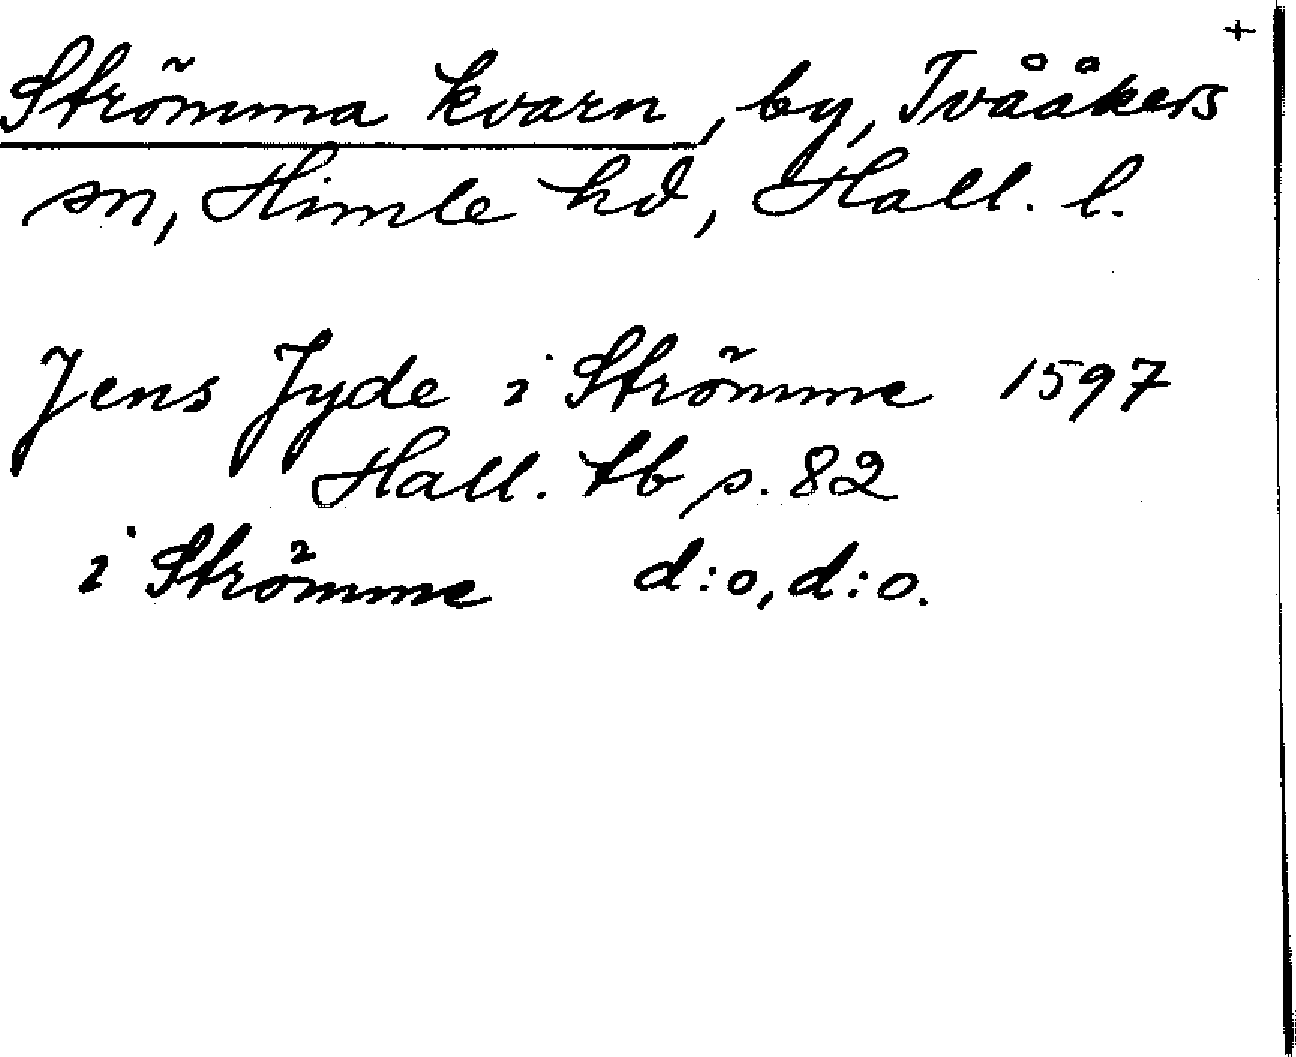 +
Strömma kvarn, by, Tvååkers
sn, Himle hd, Hall. l.
Jens Jyde i Strömme 1597
Hall. tb s. 82
i Strömme d:o, d:o.